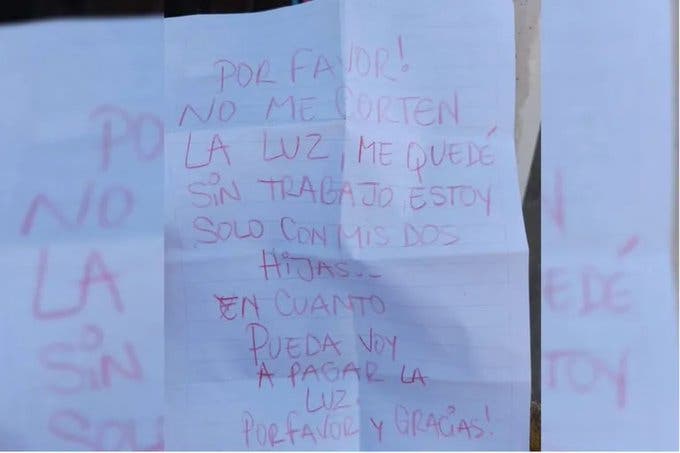 POR FAVOR!
NO ME CORTEN
LA LUZ, ME QUEDÉ
SIN TRABAJO ESTOY
SOLO CON MIS DOS
HIJAS...
EN CUANTO
PUEDA VOY
A PAGAR LA
LUZ.
POR FAVOR Y GRACIAS!